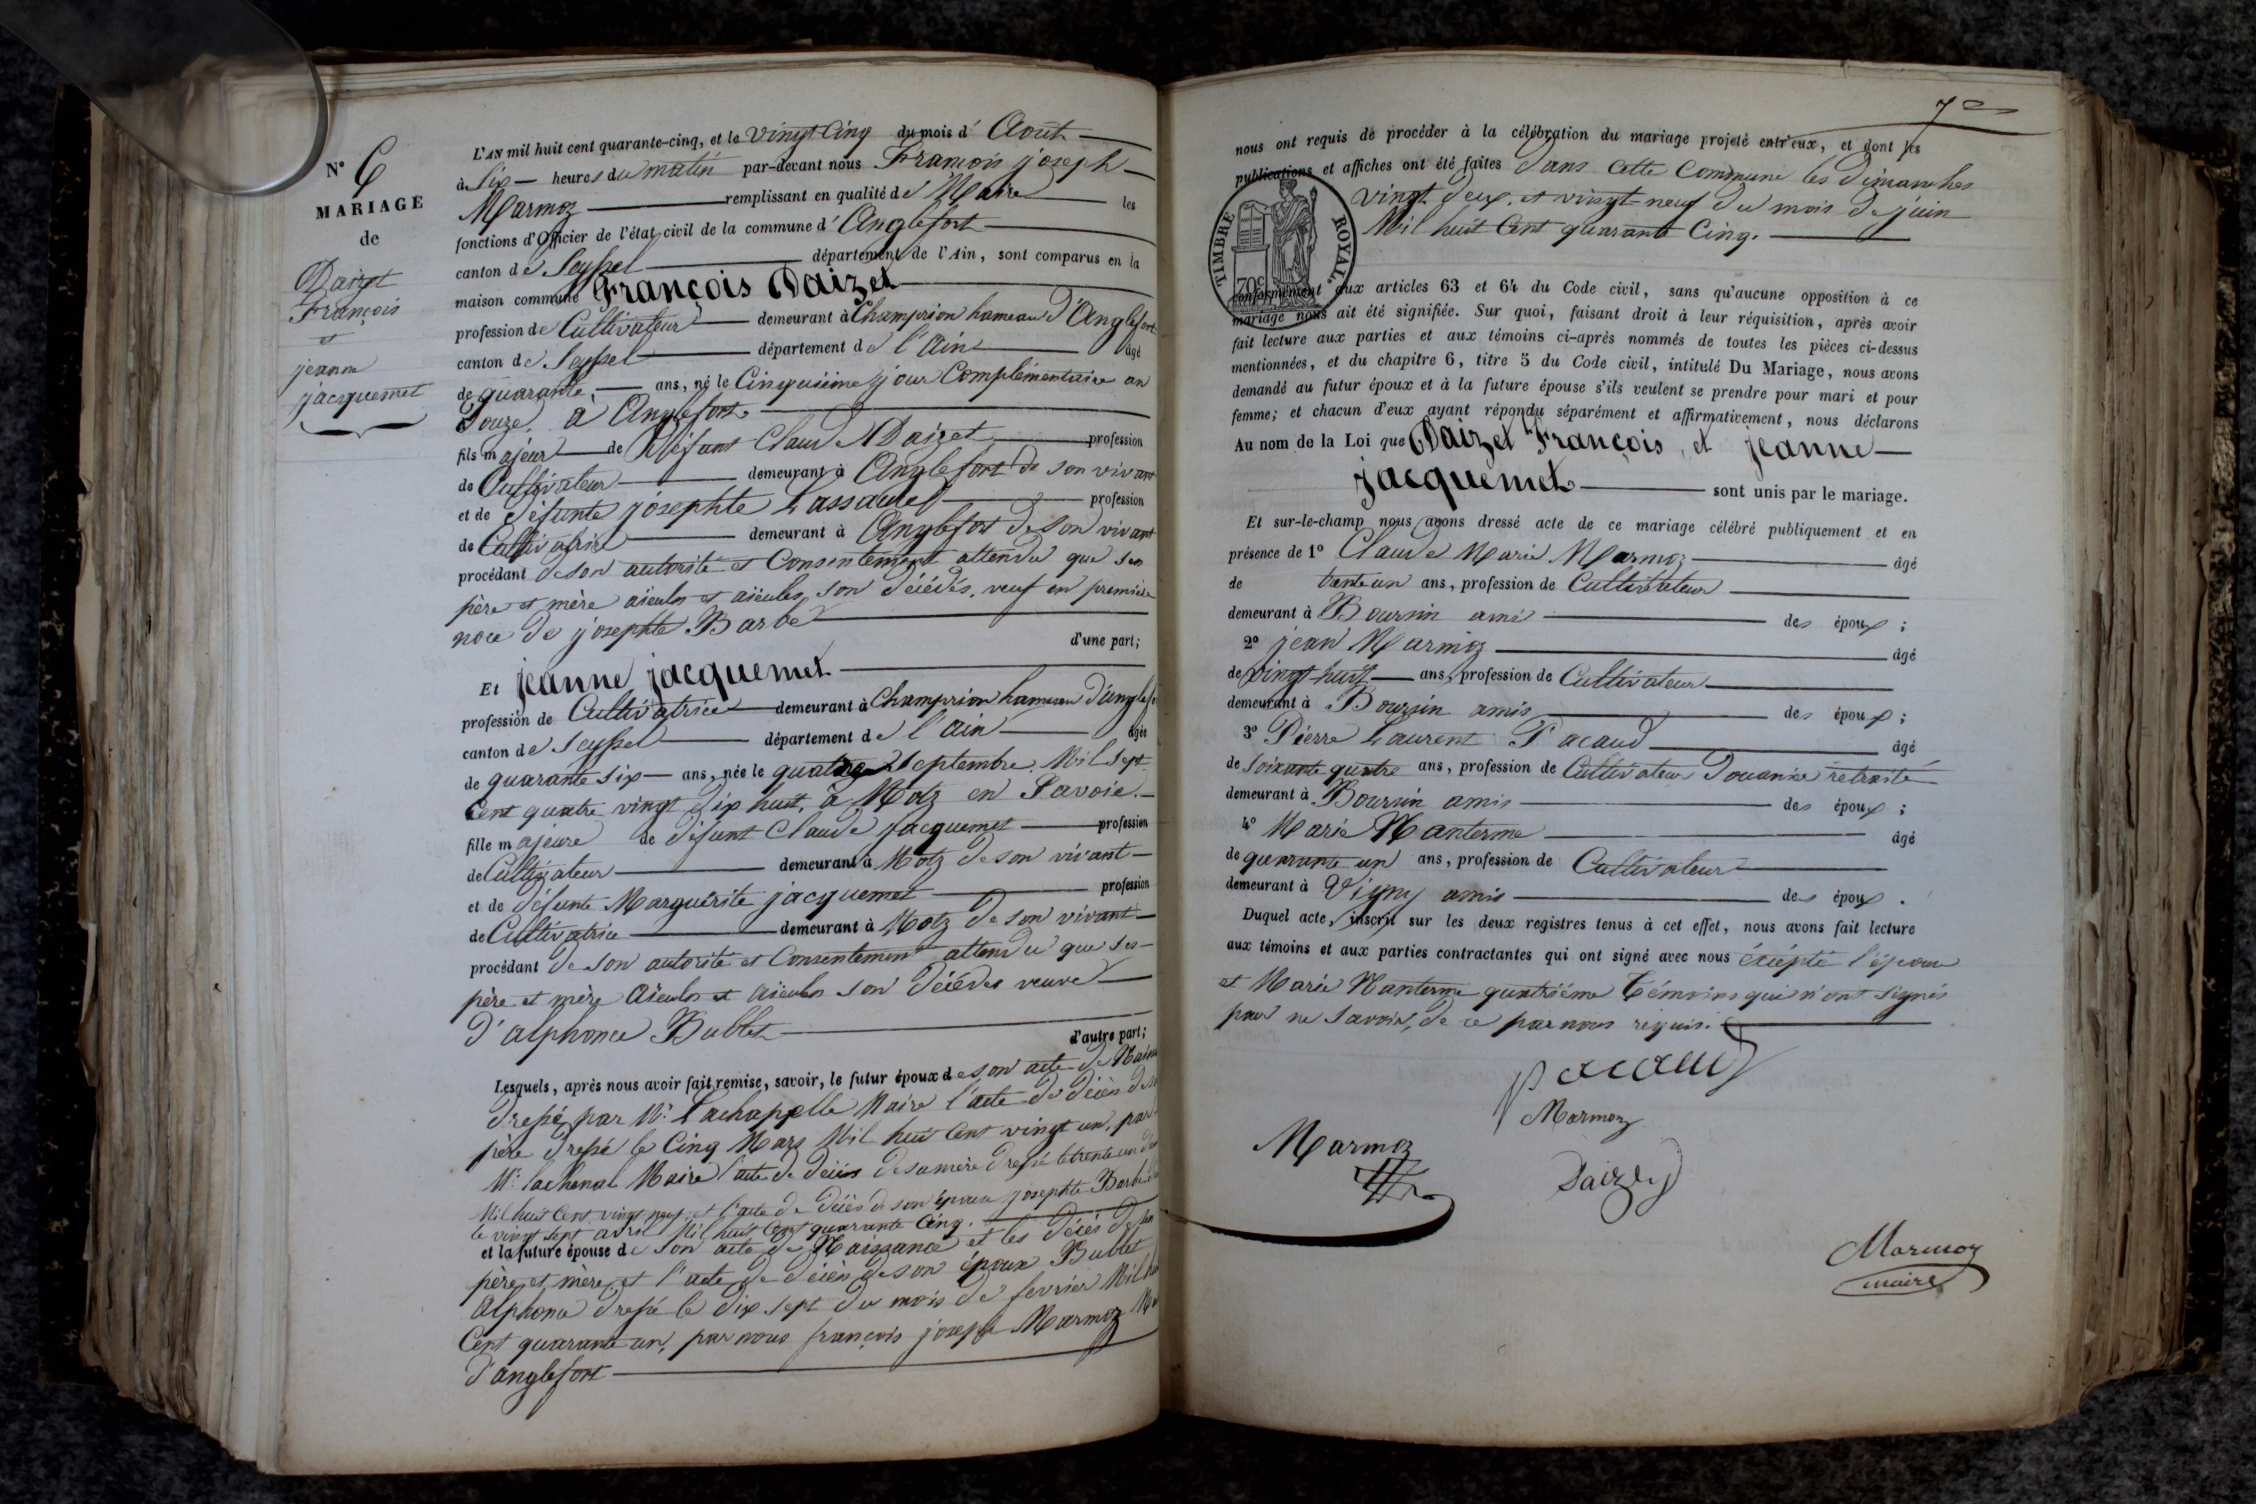 N°
MARIAGE
de
Daizet
François
et
jeanne
jacquemet
L'AN mil huit cent quarante-cinq, et le vingt Cinq du mois d' Août
à Six heures du matin par-devant nous François joseph
Marmoz remplissant en qualité de Maire les
fonctions d'Officier de l'état civil de la commune d' Anglefort
canton de Seyssel département de l'Ain, sont comparus en la
maison commune François Daizet
profession de Cultivateur demeurant à Champrion hameau d'Anglefort
canton de Seyssel département de l'Ain âgé
de quarante ans, né le Cinquième jour Complémentaire an
Douze à Anglefort
fils majeur de Défunt Claude Daizet profession
de Cultivateur demeurant à Anglefort de son vivant
et de défunte josephte Lassauge profession
de Cultivatrice demeurant à Anglefort de son vivant
procédant de son autorité et Consentement attendu que ses
père et mère aïeules et aïeules son décédés, veuf en première
noce de josephte Barbe
d'une part;
Et jeanne jacquemet
profession de Cultivatrice demeurant à Champrion hameau d'anglef
canton de Seyssel département de l'ain âgée
de quarante six ans, née le quatre Septembre Mil Sept
Cent quatre vingt dix huit, à Motz en Savoie.
fille majeure de défunt Claude jacquemet profession
de Cultivateur demeurant à Motz de son vivant
et de défunte Marguerite jacquemet profession
de Cultivatrice demeurant à Motz de son vivant
procédant de son autorité et Consentement attendu que ses
père et mère aïeules et aïeules son décédés veuve
d'alphonce Bublet
d'autre part;
Lesquels, après nous avoir fait remise, savoir, le futur époux de son acte de Naiss
dressé par Mr Lachapelle Maire l'acte de décès de s
père dressé le Cinq Mars Mil huit Cent vingt un, par
Mr lachenal Maire l'acte de décès de sa mère dressé le trente un
Mil huit Cent vingt neuf et l'acte de décès de son épouse josephte Barbe
le vingt sept avril Mil huit Cent quarante Cinq.
et la future épouse de son acte de Naissance et les décès de ses
père et mère, et l'acte de décès de son époux Bublet
Alphonce dressé le dix sept du mois de fevrier Mil hui
Cent quarante un, par nous françois joseph Marmoz Ma
d'anglefort
7
nous ont requis de procéder à la célébration du mariage projeté entr'eux, et dont les
publications et affiches ont été faites dans cette Commune les dimanches
vingt deux et vingt neuf du mois de juin
Mil huit Cent quarante Cinq.
TIMBRE ROYAL
70c
conformément aux articles 63 et 64 du Code civil, sans qu'aucune opposition à ce
mariage nous ait été signifiée. Sur quoi, faisant droit à leur réquisition, après avoir
fait lecture aux parties et aux témoins ci-après nommés de toutes les pièces ci-dessus
mentionnées, et du chapitre 6, titre 5 du Code civil, intitulé Du Mariage, nous avons
demandé au futur époux et à la future épouse s'ils veulent se prendre pour mari et pour
femme; et chacun d'eux ayant répondu séparément et affirmativement, nous déclarons
Au nom de la Loi que Daizet François, et jeanne
jacquemet sont unis par le mariage.
Et sur-le-champ nous avons dressé acte de ce mariage célébré publiquement et en
présence de 1° Claude Marie Marmoz âgé
de trente un ans, profession de Cultivateur
demeurant à Boursin ami des époux;
2° jean Marmoz âgé
de vingt huit ans, profession de Cultivateur
demeurant à Boursin amis des époux;
3° Pierre Laurent Pacaud âgé
de soixante quatre ans, profession de Cultivateur Douanier retraité
demeurant à Boursin amis des époux;
4° Marie Nanterme âgé
de quarante un ans, profession de Cultivateur
demeurant à Vigny amis des époux.
Duquel acte, inscrit sur les deux registres tenus à cet effet, nous avons fait lecture
aux témoins et aux parties contractantes qui ont signé avec nous éxcépté l'épouse
et Marie Nanterme quatrième témoins qui n'ont signés
pour ne savoir, de ce par nous requis.
Pacaud
Marmoz
Marmoz
Daizet
Marmoz
maire